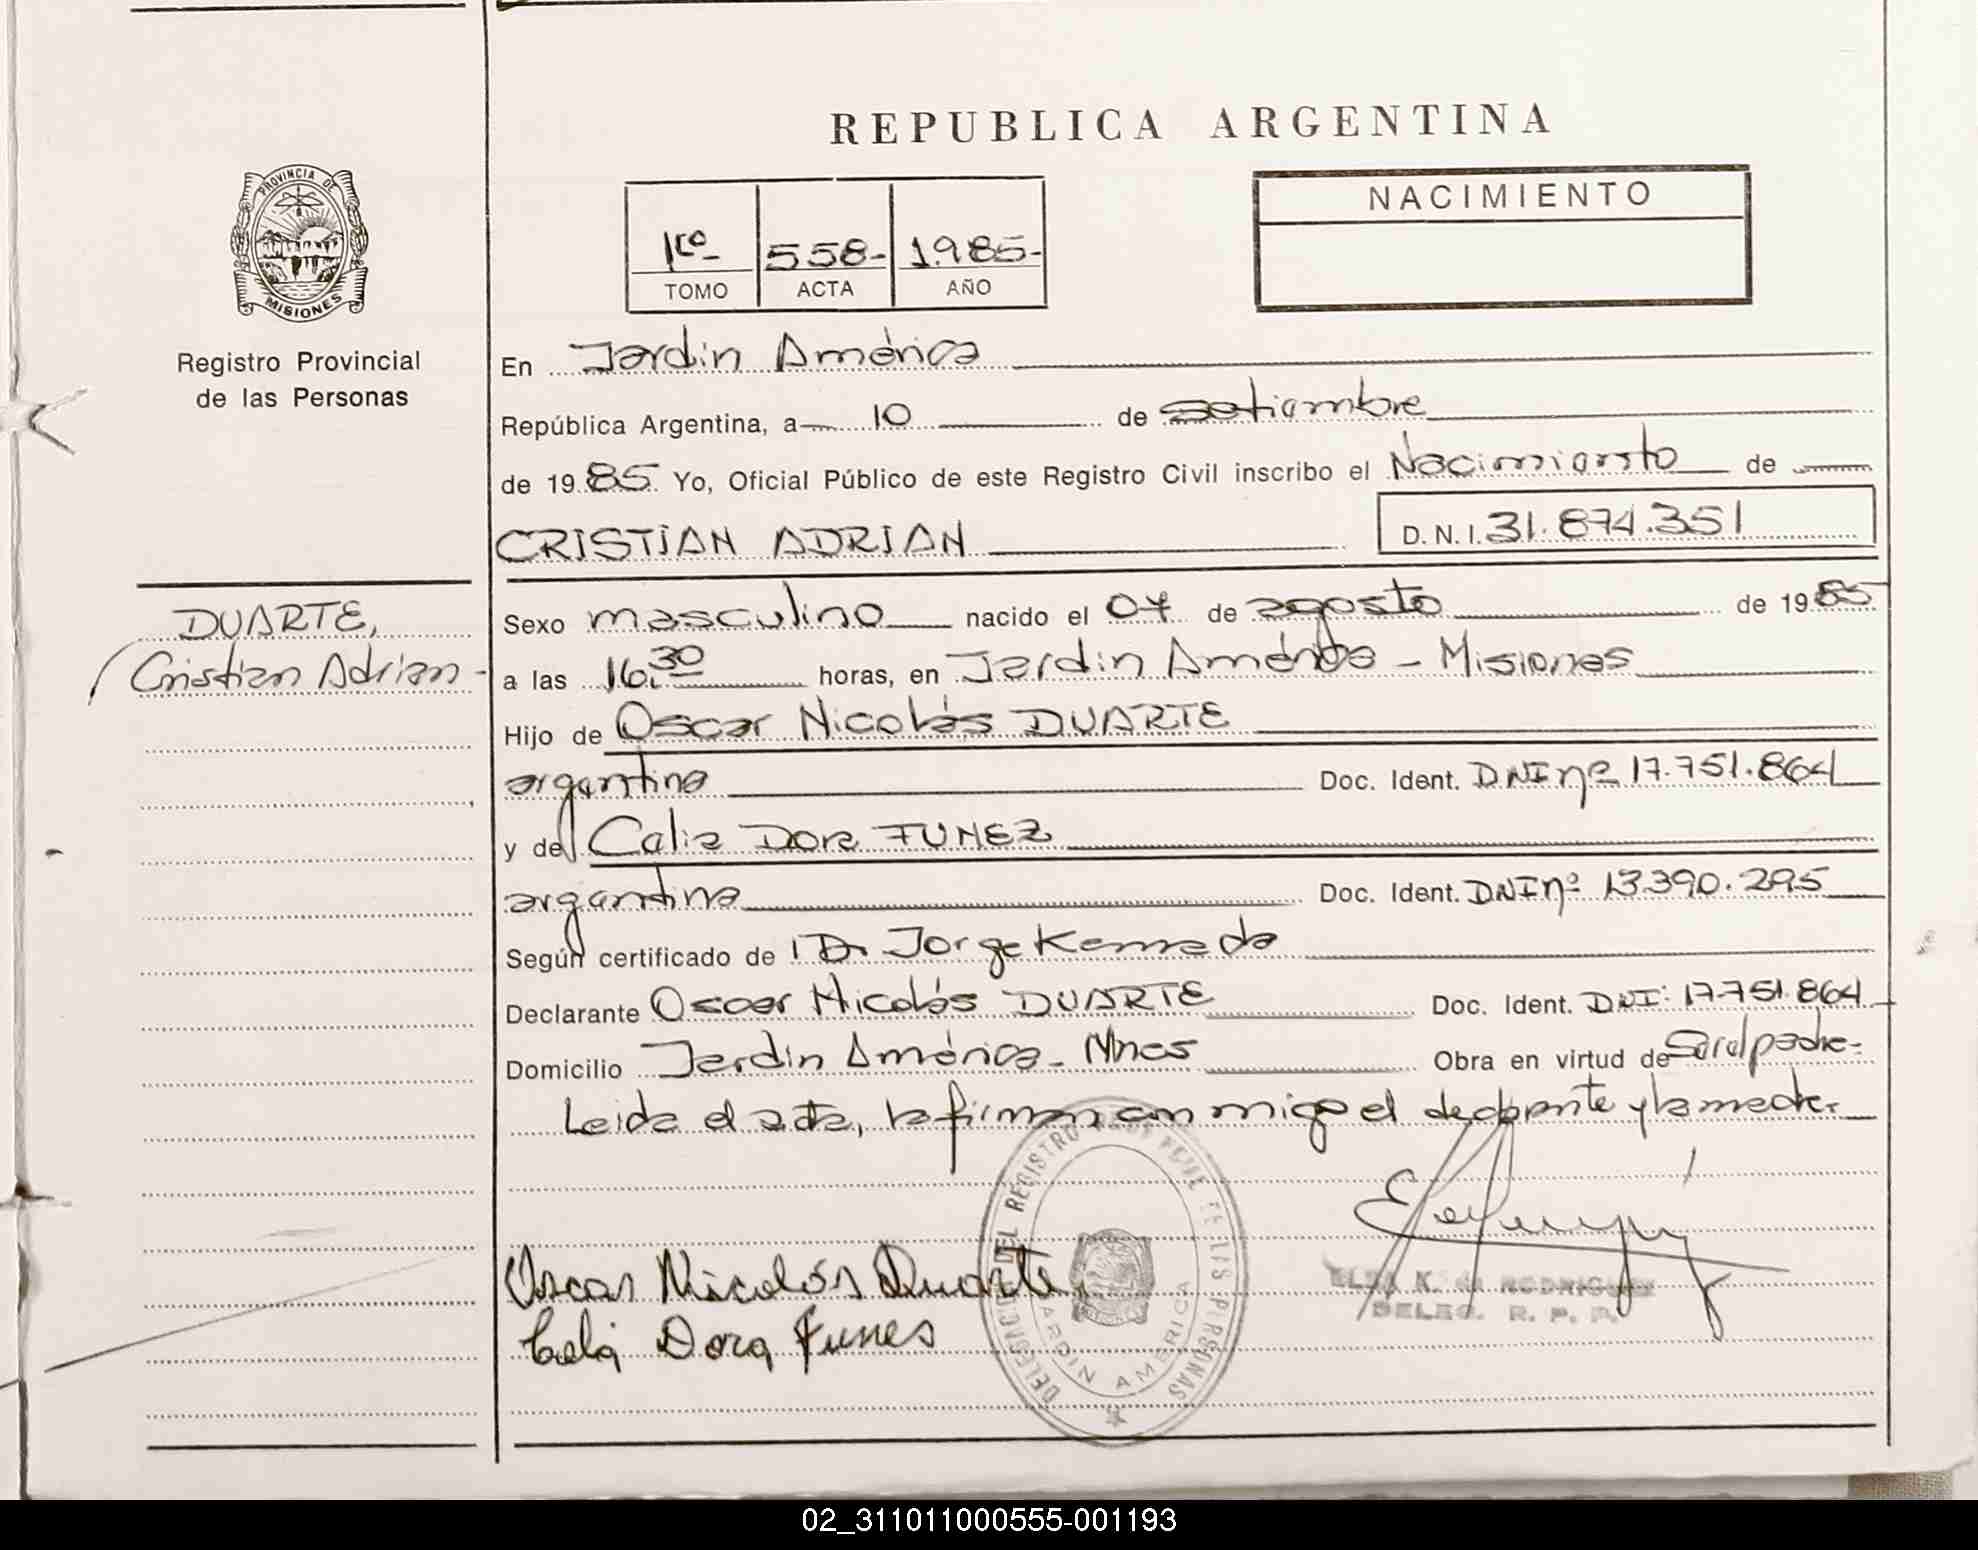 REPUBLICA ARGENTINA
PROVINCIA DE
MISIONES
Registro Provincial
de las Personas
1ro
TOMO
558-
ACTA
1.985-
AÑO
NACIMIENTO
En Jardín América
República Argentina, a 10 de setiembre
de 1985 Yo, Oficial Público de este Registro Civil inscribo el Nacimiento de
CRISTIAN ADRIAN D.N.I. 31.874.351
DUARTE,
Cristian Adrian-
Sexo masculino nacido el 04 de agosto de 1985
a las 16,30 horas, en Jardín América - Misiones
Hijo de Oscar Nicolás DUARTE
argentina Doc. Ident. DNI nº 17.751.864
y de Celia Dora FUNEZ
argentina Doc. Ident. DNI nº 13.390.295
Según certificado de Dr Jorge
Declarante Oscar Nicolás DUARTE Doc. Ident. DNI: 17.751.864
Domicilio Jardín América - Mnes Obra en virtud de Ser el padre-
Leida el acta, la firman conmigo el declarante y la madre.
Oscar Nicolás Duarte
Celia Dora Funes
DELEGACION DEL REGISTRO PROVINCIAL DE LAS PERSONAS
JARDIN AMERICA
ELSA K. de RODRIGUEZ
DELEG. R. P. P.
02_311011000555-001193